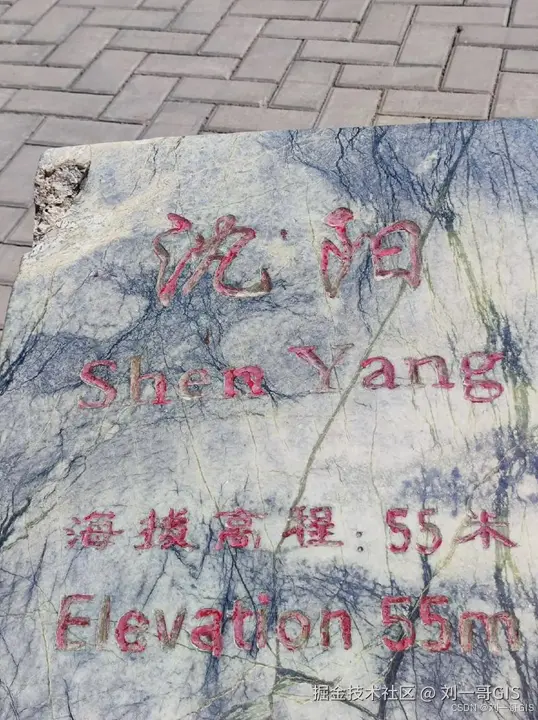 沈阳
Shen Yang
海拔高程：55米
Elevation 55m
掘金技术社区 @ 刘一哥GIS
CSDN @刘一哥GIS